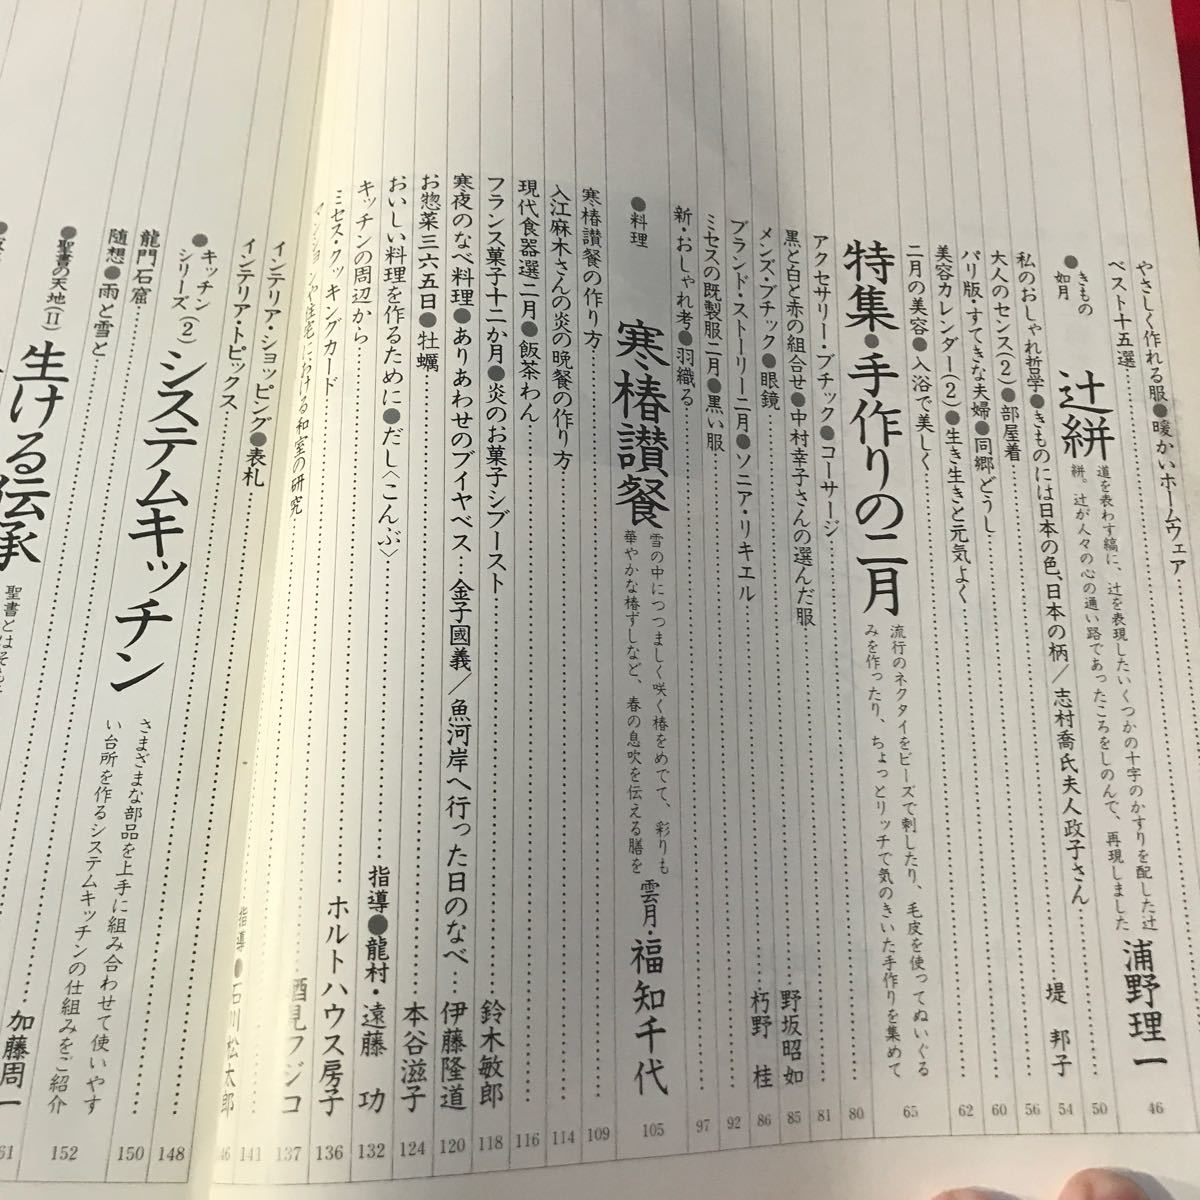 やさしく作れる服●暖かいホームウェア
ベスト十五選
46
●きもの
如月
辻絣
道を表わす縞に、辻を表現したいくつかの十字のかすりを配した辻
絣。辻が人々の心の通い路であったころをしのんで、再現しました
浦野理一
50
私のおしゃれ哲学●きものには日本の色、日本の柄/志村喬氏夫人政子さん
54
大人のセンス(2)●部屋着
堤 邦子
56
パリ版・すてきな夫婦●同郷どうし
60
美容カレンダー(2)●生き生きと元気よく
62
二月の美容●入浴で美しく
特集●手作りの二月
流行のネクタイをビーズで刺したり、毛皮を使ってぬいぐる
みを作ったり、ちょっとリッチで気のきいた手作りを集めて
65
アクセサリー・ブチック●コーサージ
80
黒と白と赤の組合せ●中村幸子さんの選んだ服
81
メンズ・ブチック●眼鏡
野坂昭如
85
ブランド・ストーリー二月●ソニア・リキエル
朽野 桂
86
ミセスの既製服二月●黒い服
92
新・おしゃれ考●羽織る
97
●料理
寒椿讃餐
雪の中につつましく咲く椿をめでて、彩りも
華やかな椿ずしなど、春の息吹を伝える膳を
雲月・福知千代
105
寒椿讃餐の作り方
109
入江麻木さんの炎の晩餐の作り方
114
現代食器選二月●飯茶わん
116
フランス菓子十二か月●炎のお菓子シブースト
鈴木敏郎
118
寒夜のなべ料理●ありあわせのブイヤベス…金子國義/魚河岸へ行った日のなべ…伊藤隆道
120
お惣菜三六五日●牡蠣
本谷滋子
124
おいしい料理を作るために●だし〈こんぶ〉
指導●龍村・遠藤 功
132
キッチンの周辺から
ホルトハウス房子
136
ミセス・クッキングカード
137
マンションや住宅における和室の研究
インテリア・ショッピング●表札
141
インテリア・トピックス
指導●石川松太郎
●キッチン
シリーズ(2)
システムキッチン
さまざまな部品を上手に組み合わせて使いやす
い台所を作るシステムキッチンの仕組みをご紹介
148
龍門石窟
150
随想●雨と雪と
152
●聖書の天地(11)
生ける伝承
加藤周一